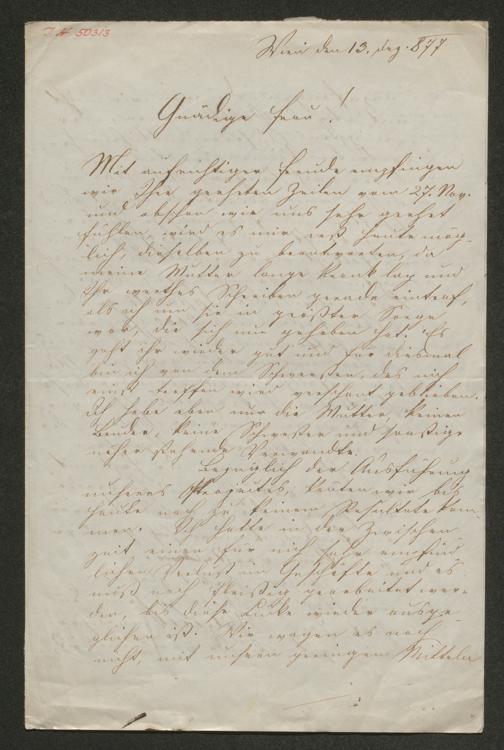 I N 50313
Wien den 13. Dez. 877
Gnädige Frau!
Mit aufrichtiger Freude empfingen
wir Ihre geehrten Zeilen vom 27. Nov.
und obschon wir uns sehr geehrt
fühlen, wird es mir erst heute mög-
lich, dieselben zu beantworten, da
meine Mutter lange krank lag und
Ihr werthes Schreiben gerade eintraf,
als ich um sie in größter Sorge
war, die sich nun gehoben hat. Es
geht ihr wieder gut und für diesmal
bin ich von dem Schwersten, das mich
einst treffen wird verschont geblieben.
Ich habe aber nur die Mutter, keinen
Bruder, keine Schwester und sonstige
näher stehende Verwandte.
Bezüglich der Ausführung
unseres Projectes, kamen wir bis
heute noch zu keinem Resultate
Ich hatte in der Zwischen
zeit einen für mich sehr empfind
lichen Verlust im Geschäfte und es
muß noch fleißig gearbeitet wer-
den, bis diese Lücke wieder ausge-
glichen ist. Wir wagen es noch
nicht, mit unsern geringen Mitteln